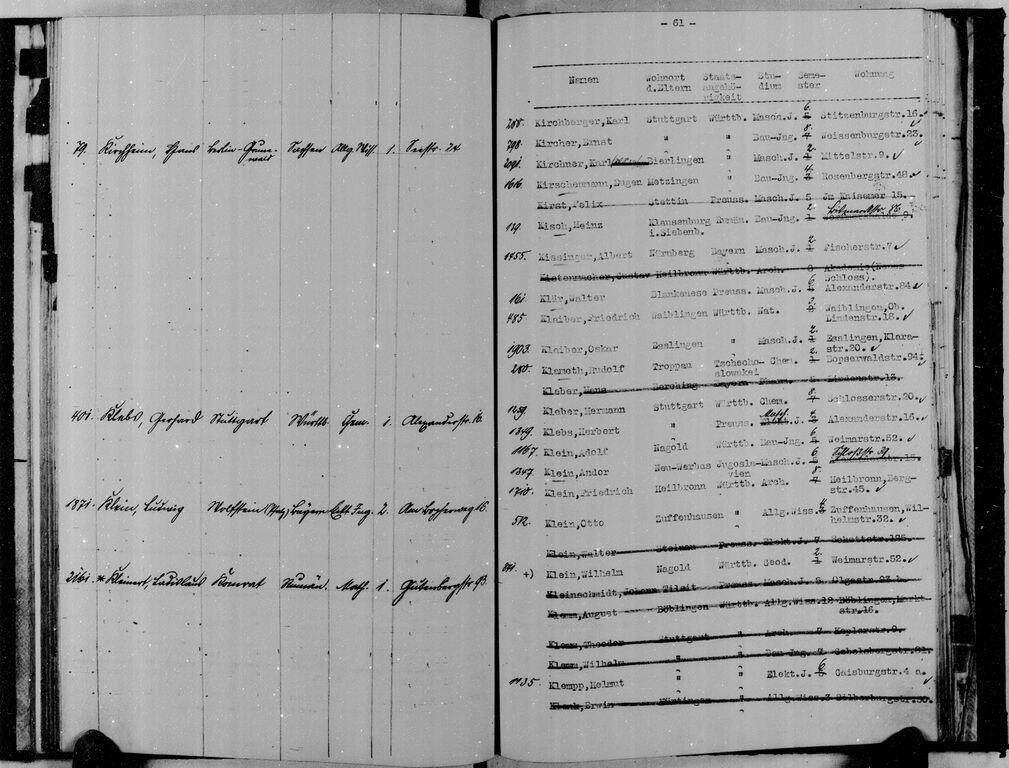 79. Kirchheim, Hans Berlin-Grune- Sachsen Allg.Wiss. 1. Seestr. 24
wald
401. Klebs, Gerhard Stuttgart Württb. Gem. 1. Alexanderstr. 16.
1871. Klein, Ludwig Wolfstein (Pfalz) Bayern Elkt. Ing. 2. Am Dopferweg 16.
2161. Kleinert, Ladislaus Rumän. Math. 1. Gutenbergstr. 93
- 61 -
Namen Wohnort Staats- Stu- Seme- Wohnung
d.Eltern angehö- dium ster
rigkeit
288. Kirchberger, Karl Stuttgart Württb. Masch.J. 6. Stitzenburgstr.16.
798. Kircher, Ernst " " Bau-Jng. 8. Weissenburgstr.23.
2091. Kirchner, Karl Bierlingen " Masch.J. 2. Mittelstr.9.
1616. Kirschenmann, Eugen Metzingen " Bau-Jng. 4. Rosenbergstr.48.
Kirst, Felix Stettin Preuss. Masch.J. 5 Jm Kaisemer 15.
139. Kisch, Heinz Klausenburg Rumän. Bau-Jng. 2.
i.Siebenb.
1455. Kissinger, Albert Nürnberg Bayern Masch.J. 2. Fischerstr.7
Kistenmacher, Gustav Heilbronn Württb. Arch. 8 Akademie (Neues
Schloss).
161. Klär, Walter Blankenese Preuss. Masch.J. 6. Alexanderstr.84
485. Klaiber, Friedrich Waiblingen Württb. Nat. Waiblingen, Ob.
Lindenstr.18.
1903. Klaiber, Oskar Esslingen " Masch.J. 2. Esslingen, Klara-
str.20.
280. Klameth, Rudolf Troppau Tschecho- Chem. 2. Bopserwaldstr.94
slowakei
Kleber, Hans Berching Bayern Pharm. Lindenstr.13.
1259. Kleber, Hermann Stuttgart Württb. Chem. 8. Schlosserstr.20.
1349. Klebs, Herbert " Preuss. Masch. J. Alexanderstr.16.
1167. Klein, Adolf Nagold Württb. Bau-Jng. 6. Weimarstr.52.
1347. Klein, Andor Neu-Werbas Jugosla- Masch.J. 6.
vien
1718. Klein, Friedrich Heilbronn Württb. Arch. 8. Heilbronn, Berg-
str.45.
512. Klein, Otto Zuffenhausen " Allg.Wiss. 4. Zuffenhausen, Wil-
helmstr.32.
Klein, Walter Steinau Preuss. Elekt.J. 7 Schottstr.125.
841. +) Klein, Wilhelm Nagold Württb. Geod. 2. Weimarstr.52.
Kleinschmidt, Johann Preuss. Masch.J. 5. Olgastr.93 b.
Klemm, August Böblingen Württb. Allg.Wiss.12 Böblingen, Markt-
str.16.
Klemm, Theodor Stuttgart " Arch. 7 Keplerstr.9.
Klemm, Wilhelm " " Bau-Jng. 7
1135. Klempp, Helmut " " Elekt.J. 6. Gaisburgstr.4 a.
Klenk, Erwin Nürtingen " Allg.Wiss.3 Silberburgstr.